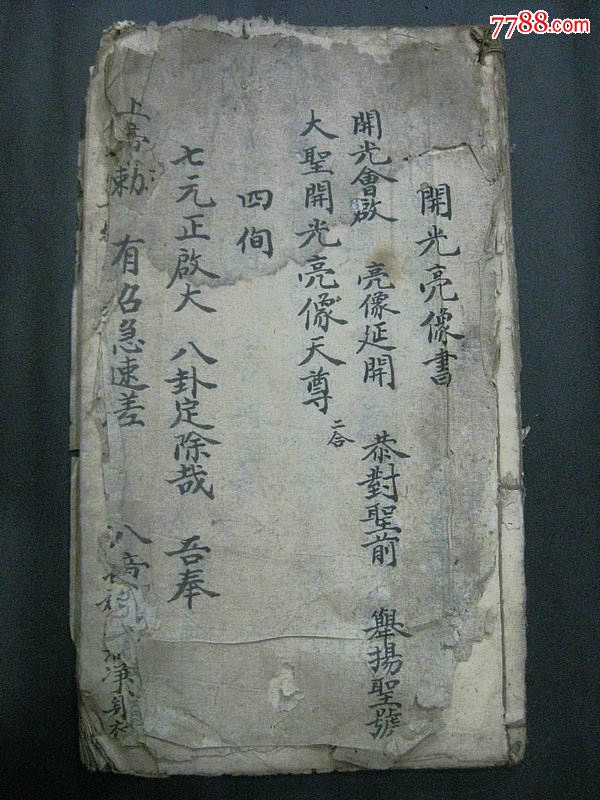 7788.com
開光亮像書
開光會啟 亮像延開 恭對聖前 舉揚聖號
大聖開光亮像天尊 二合
四徇
七元正啟大 八卦定除哉 吾奉
上帝勅 有召急速差
淨身